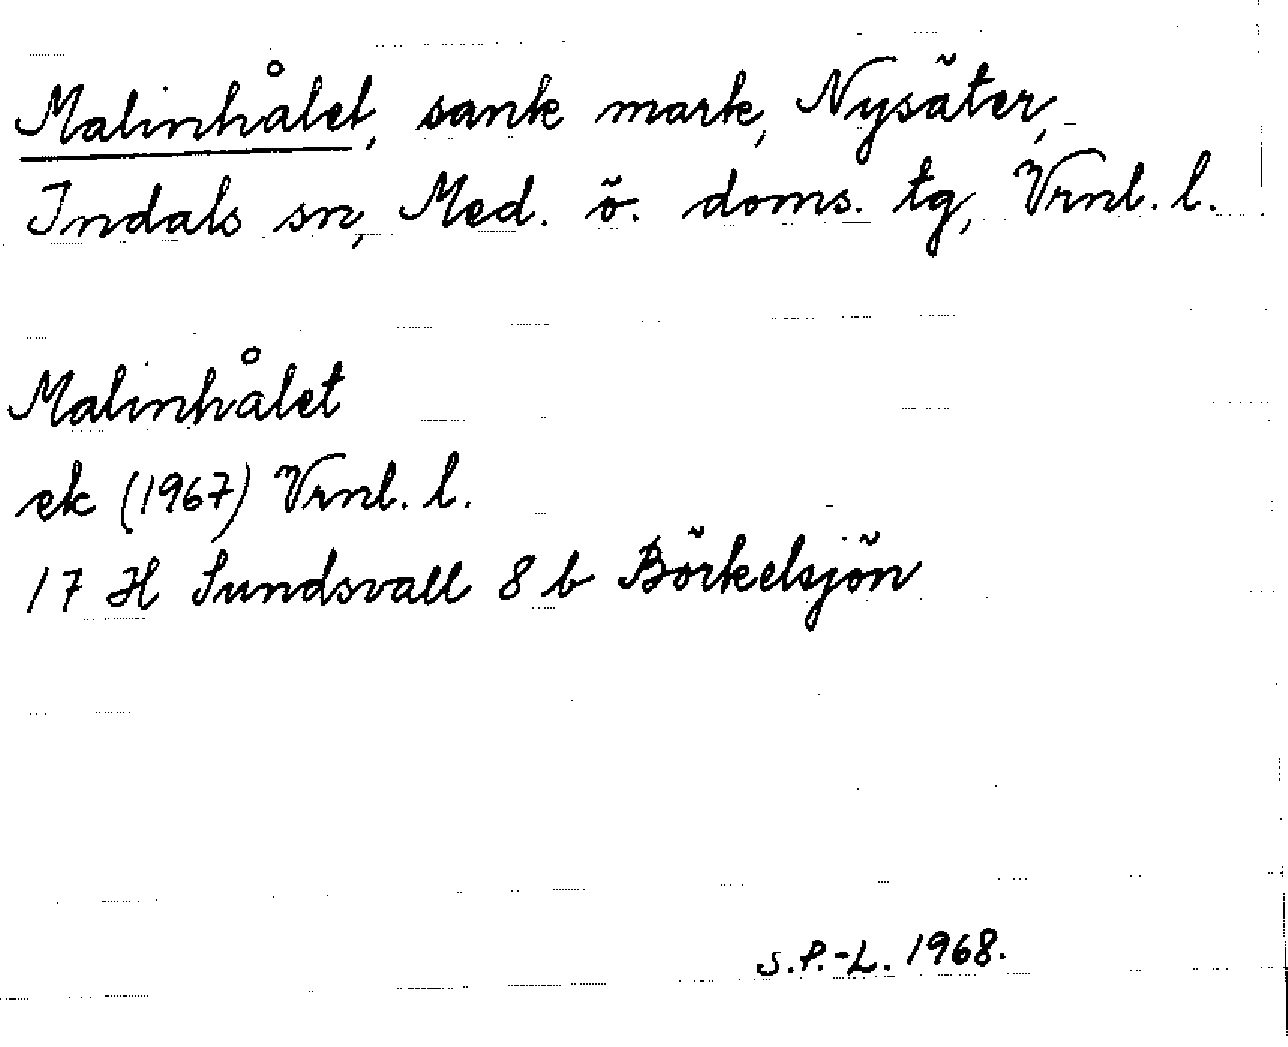 Malinhålet, sank mark, Nysäter,
Indals sn, Med. ö. doms. tg, Vrnl. l.
Malinhålet
ek (1967) Vrnl. l.
17 H Sundsvall 8 b Börkelsjön
S.P.-L. 1968.